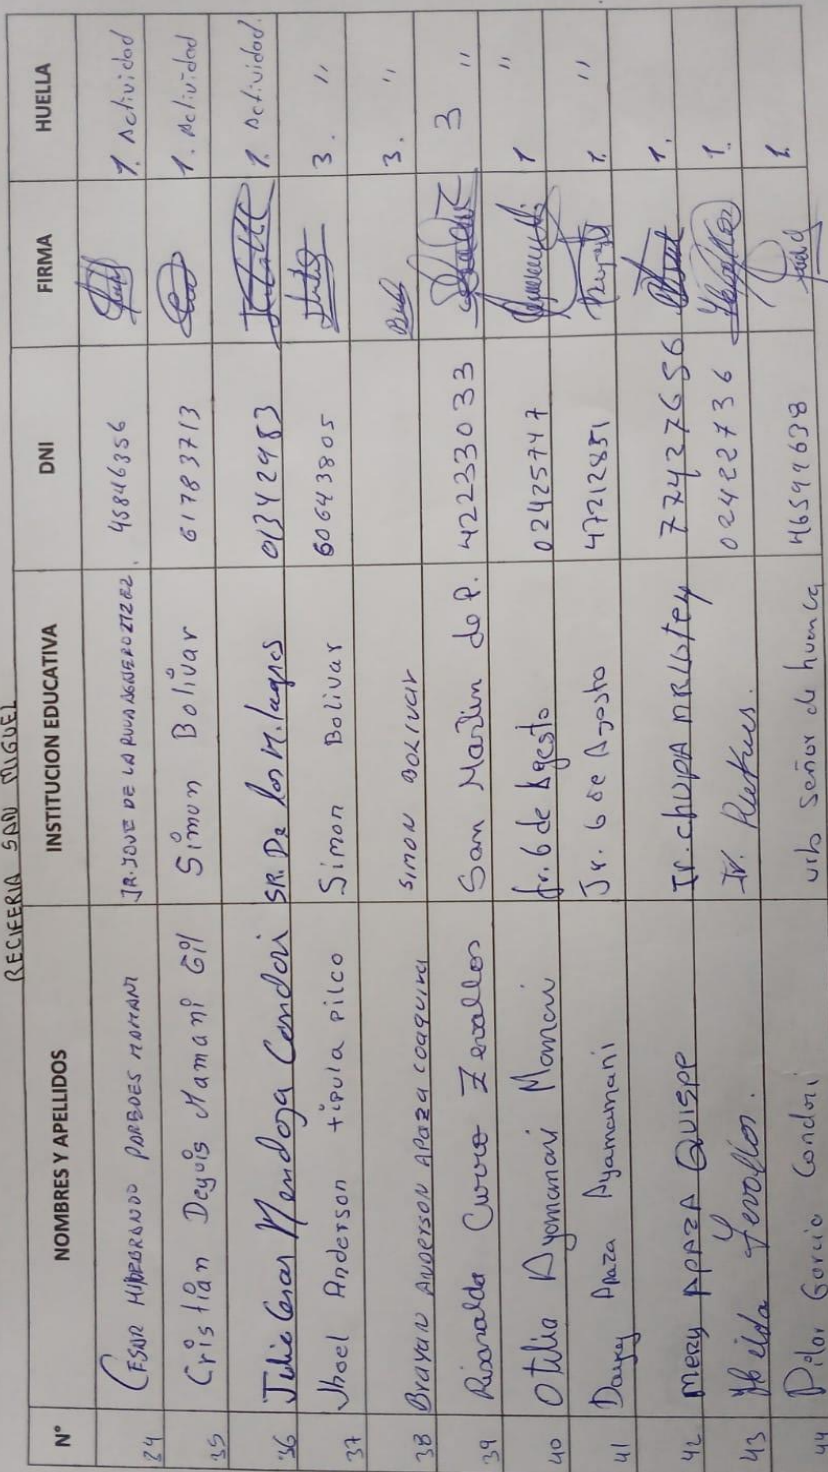 RECIFERIA SAN MIGUEL
N° NOMBRES Y APELLIDOS INSTITUCION EDUCATIVA DNI FIRMA HUELLA
34 CESAR HILDEBRANDO PAREDES MAMANI JR. JOVE DE LA 45846356 1. Actividad
35 Cristian Deyvis Mamani Gil Simon Bolivar 61783713 1. Actividad
36 Julio Cesar Mendoza Condori SR. De los Milagros 01342983 1. Actividad.
37 Jhoel Anderson tipula pilco Simon Bolivar 60643805 3. "
38 Brayan ANDERSON APAZA COAQUIRA SIMON BOLIVAR 3. "
39 Risonalda Curro Zevallos San Martin de P. 42233033 3 "
40 Otilia Ayamamani Mamani Jr. 6 de Agosto 02425747 1 "
41 Daysy Apaza Ayamamani Jr. 6 de Agosto 47212851 1. "
42 Mery APAZA QUISPP Jr. CHUPA 77427656 1.
43 Hilda Zevallos. Jr. 02422736 1.
44 Pilar Garcia Condori urb señor de huanca 46599638 1.